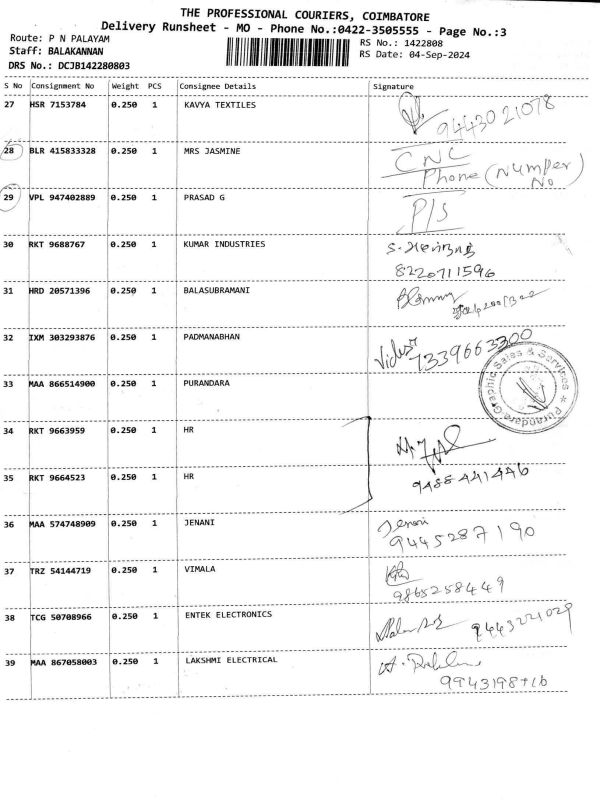 THE PROFESSIONAL COURIERS, COIMBATORE
Delivery Runsheet - MO - Phone No.:0422-3505555 - Page No.:3
Route: P N PALAYAM
RS No.: 1422808
Staff: BALAKANNAN
RS Date: 04-Sep-2024
DRS No.: DCJB142280803
S No Consignment No Weight PCS Consignee Details Signature
27 HSR 7153784 0.250 1 KAVYA TEXTILES
9443021078
28 BLR 415833328 0.250 1 MRS JASMINE CNC
Phone (Number No)
29 VPL 947402889 0.250 1 PRASAD G P/S
30 RKT 9688767 0.250 1 KUMAR INDUSTRIES
8220711596
31 HRD 20571396 0.250 1 BALASUBRAMANI
32 IXM 303293876 0.250 1 PADMANABHAN
7339663300
33 MAA 866514900 0.250 1 PURANDARA
Purandara Graphic Sales & Services
34 RKT 9663959 0.250 1 HR
35 RKT 9664523 0.250 1 HR
9488441446
36 MAA 574748909 0.250 1 JENANI Jenani
9445287190
37 TRZ 54144719 0.250 1 VIMALA
9865258449
38 TCG 50708966 0.250 1 ENTEK ELECTRONICS
9443221029
39 MAA 867058003 0.250 1 LAKSHMI ELECTRICAL